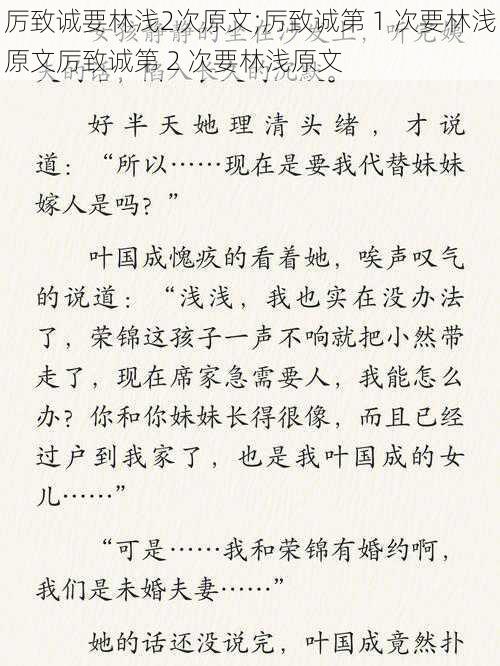 厉致诚要林浅2次原文;厉致诚第 1 次要林浅
原文厉致诚第 2 次要林浅原文
好半天她理清头绪，才说
道：“所以……现在是要我代替妹妹
嫁人是吗？”
叶国成愧疚的看着她，唉声叹气
的说道：“浅浅，我也实在没办法
了，荣锦这孩子一声不响就把小然带
走了，现在席家急需要人，我能怎么
办？你和你妹妹长得很像，而且已经
过户到我家了，也是我叶国成的女
儿……”
“可是……我和荣锦有婚约啊，
我们是未婚夫妻……”
她的话还没说完，叶国成竟然扑